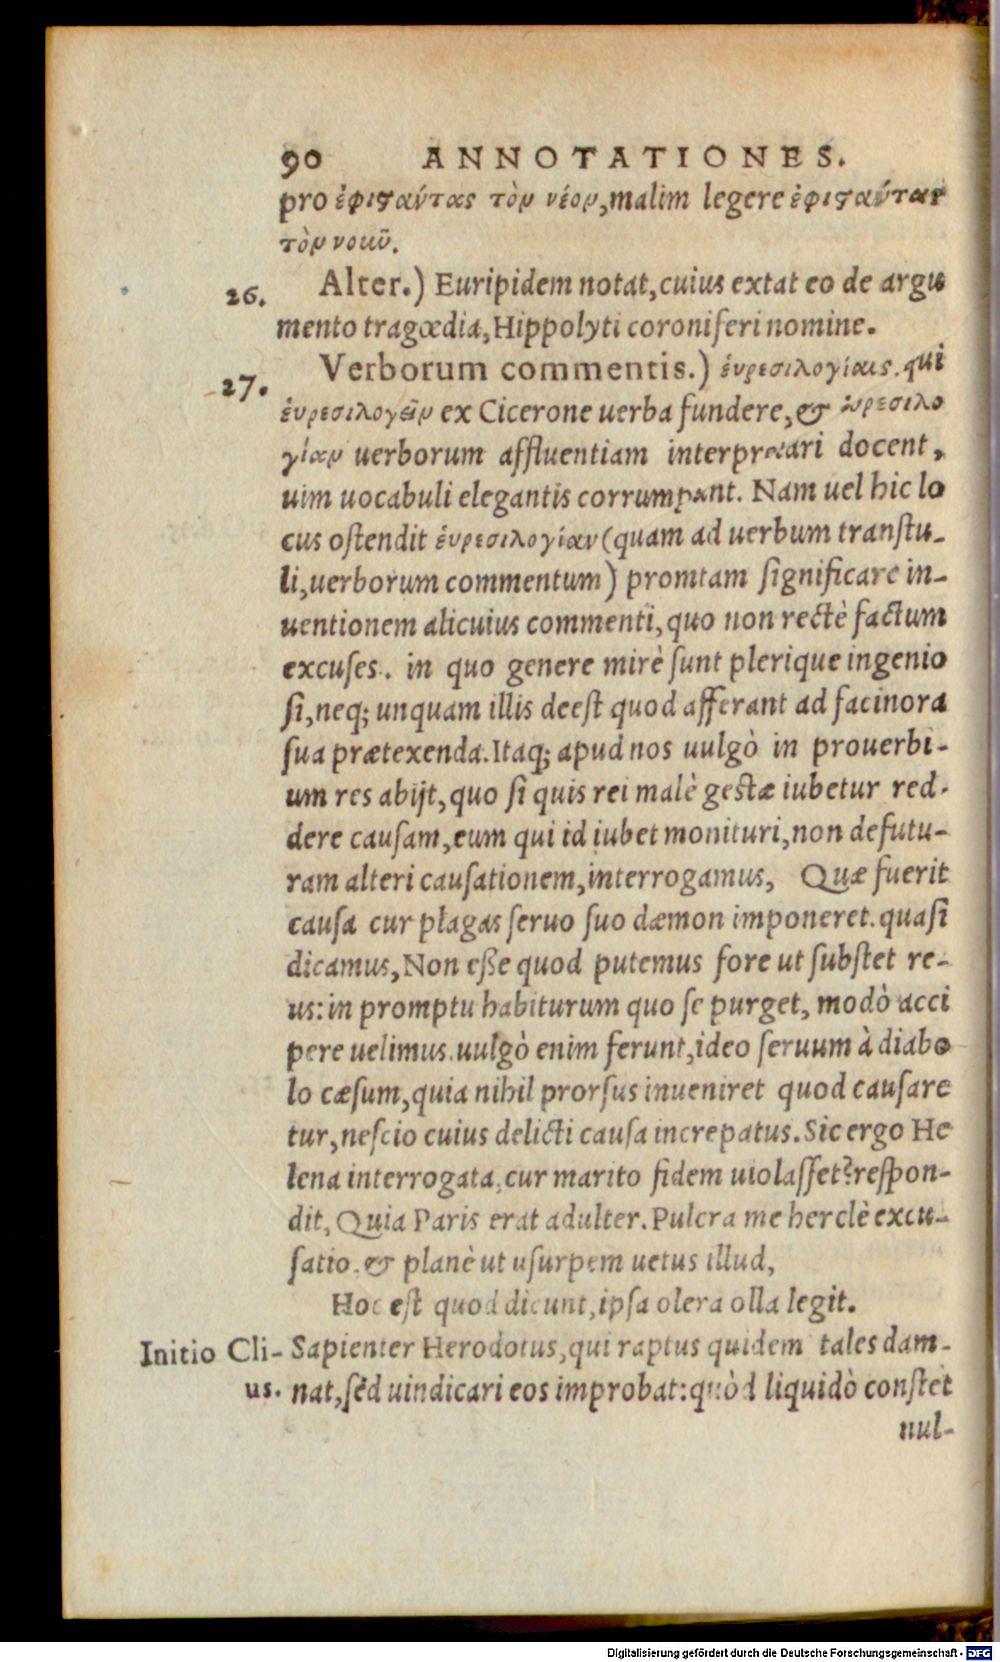 90 ANNOTATIONES.
pro ἐφιϛαύτας τὸν νέον, malim legere ἐφιϛαύτας
τὸν νουῦ.
26. Alter.) Euripidem notat, cuius extat eo de argu
mento tragœdia, Hippolyti coroniferi nomine.
27. Verborum commentis.) ἑυρεσιλογίαις. qui
ἑυρεσιλογεῖν ex Cicerone uerba fundere, & ἑυρεσιλο
γίαν uerborum affluentiam interpretari docent,
uim uocabuli elegantis corrumpant. Nam uel hic lo
cus oſtendit ἑυρεσιλογίαν (quam ad uerbum tranſtu-
li, uerborum commentum) promtam ſignificare in-
uentionem alicuius commenti, quo non rectè factum
excuſes. in quo genere mirè ſunt plerique ingenio
ſi, neq; unquam illis deeſt quod afferant ad facinora
ſua prætexenda. Itaq; apud nos uulgò in prouerbi-
um res abijt, quo ſi quis rei malè geſtæ iubetur red-
dere cauſam, eum qui id iubet monituri, non defutu-
ram alteri cauſationem, interrogamus, Quæ fuerit
cauſa cur plagas ſeruo ſuo dæmon imponeret. quaſi
dicamus, Non eſſe quod putemus fore ut ſubſtet re-
us: in promptu habiturum quo ſe purget, modò acci
pere uelimus. uulgò enim ferunt, ideo ſeruum à diabo
lo cæſum, quia nihil prorſus inueniret quod cauſare
tur, neſcio cuius delicti cauſa increpatus. Sic ergo He
lena interrogata, cur marito fidem uiolaſſet? reſpon-
dit, Quia Paris erat adulter. Pulcra me herclè excu-
ſatio. & planè ut uſurpem uetus illud,
Hoc eſt quod dicunt, ipſa olera olla legit.
Initio Cli- Sapienter Herodotus, qui raptus quidem tales dam-
us. nat, ſed uindicari eos improbat: quòd liquidò conſtet
nul-
Digitalisierung gefördert durch die Deutsche Forschungsgemeinschaft - DFG